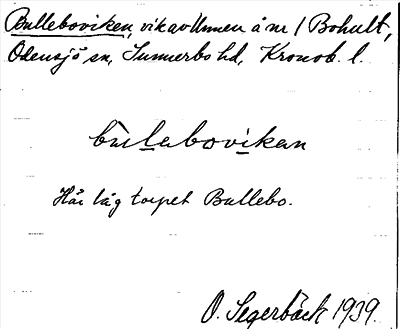 Bulleboviken, vik av Unnen å nr 1 Bohult,
Odensjö sn, Sunnerbo hd, Kronob. l.
bulebovikan
Här låg torpet Bullebo.
O. Segerbäck 1939.